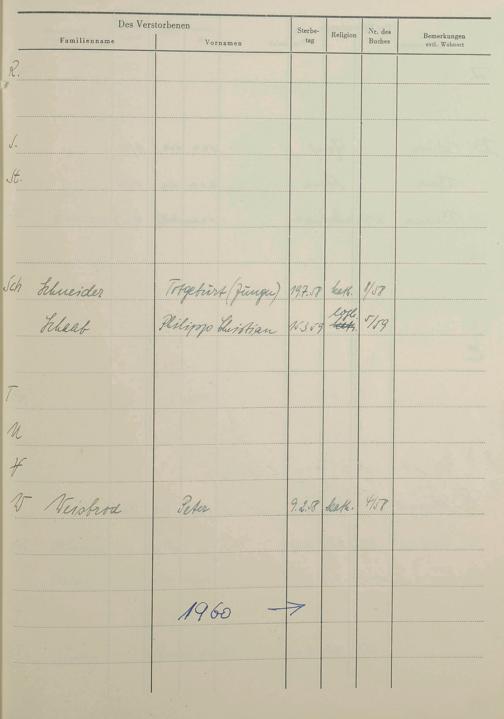 Des Verstorbenen
Familienname
Vornamen
Sterbe-
tag
Religion
Nr. des
Buches
Bemerkungen
evtl. Wohnort
R.
S.
St.
Sch Schneider Totgeburt (Junge) 19.7.58 kath. 1/58
Schaab Philipp Christian 16.3.59 evgl. kath. 5/59
T
U
V
W Weisbrod Peter 9.2.58 kath. 4/58
1960 →